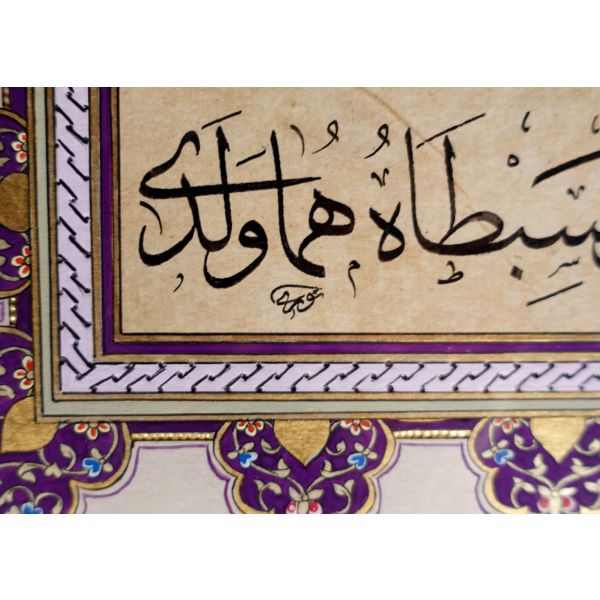 سِبْطَاهُ هُمَا وَلَدَى